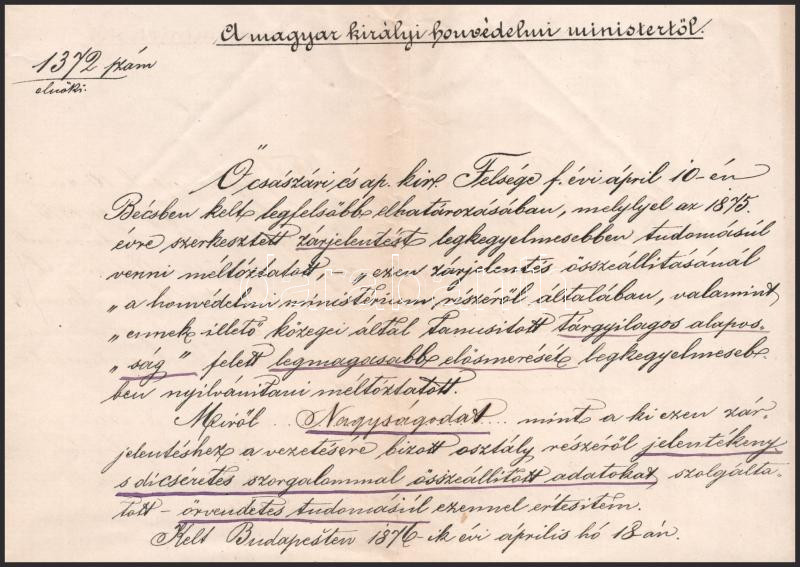 A magyar királyi honvédelmi ministertől.
1372 szám
elnöki.
Ő császári és ap. kir. Felsége f. évi április 10-én
Bécsben kelt legfelsőbb elhatározásában, melylyel az 1875.
évre szerkesztett zárjelentést legkegyelmesebben tudomásúl
venni méltóztatott, – „ezen zárjelentés összeállitásánál
„a honvédelmi ministerium részéről általában, valamint
„ennek illető közegei által tanusitott tárgyilagos alapos-
„ság" felett legmagasabb elösmerését legkegyelmeseb-
ben nyilvánitani méltóztatott.
Miről Nagyságodat mint a ki ezen zár-
jelentéshez a vezetésére bizott osztály részéről jelentékeny
s dicséretes szorgalommal összeállitott adatokat szolgálta-
tott – örvendetes tudomásúl ezennel értesitem.
Kelt Budapesten 1876-ik évi április hó 18-án.